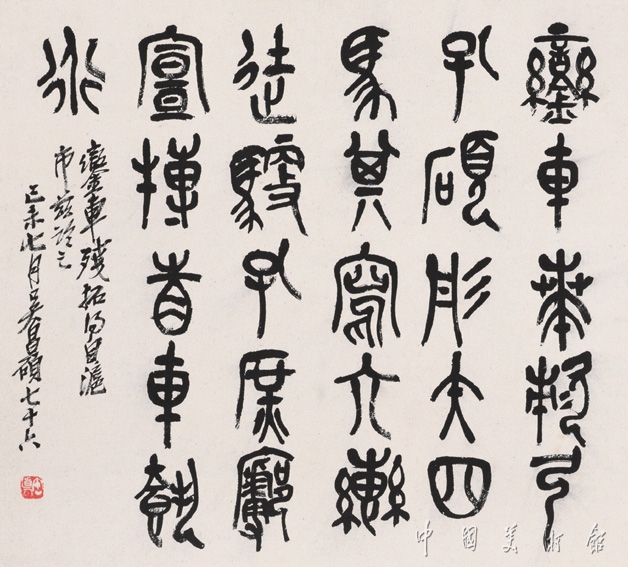 鑾車𠦪敕弓
孔碩彤矢四
馬其寫六轡
徒馭孔庶鄜
宣搏眚車
行
鑾車殘拓得自滬
市茲臨之
己未七月吳昌碩七十六
中國美術館